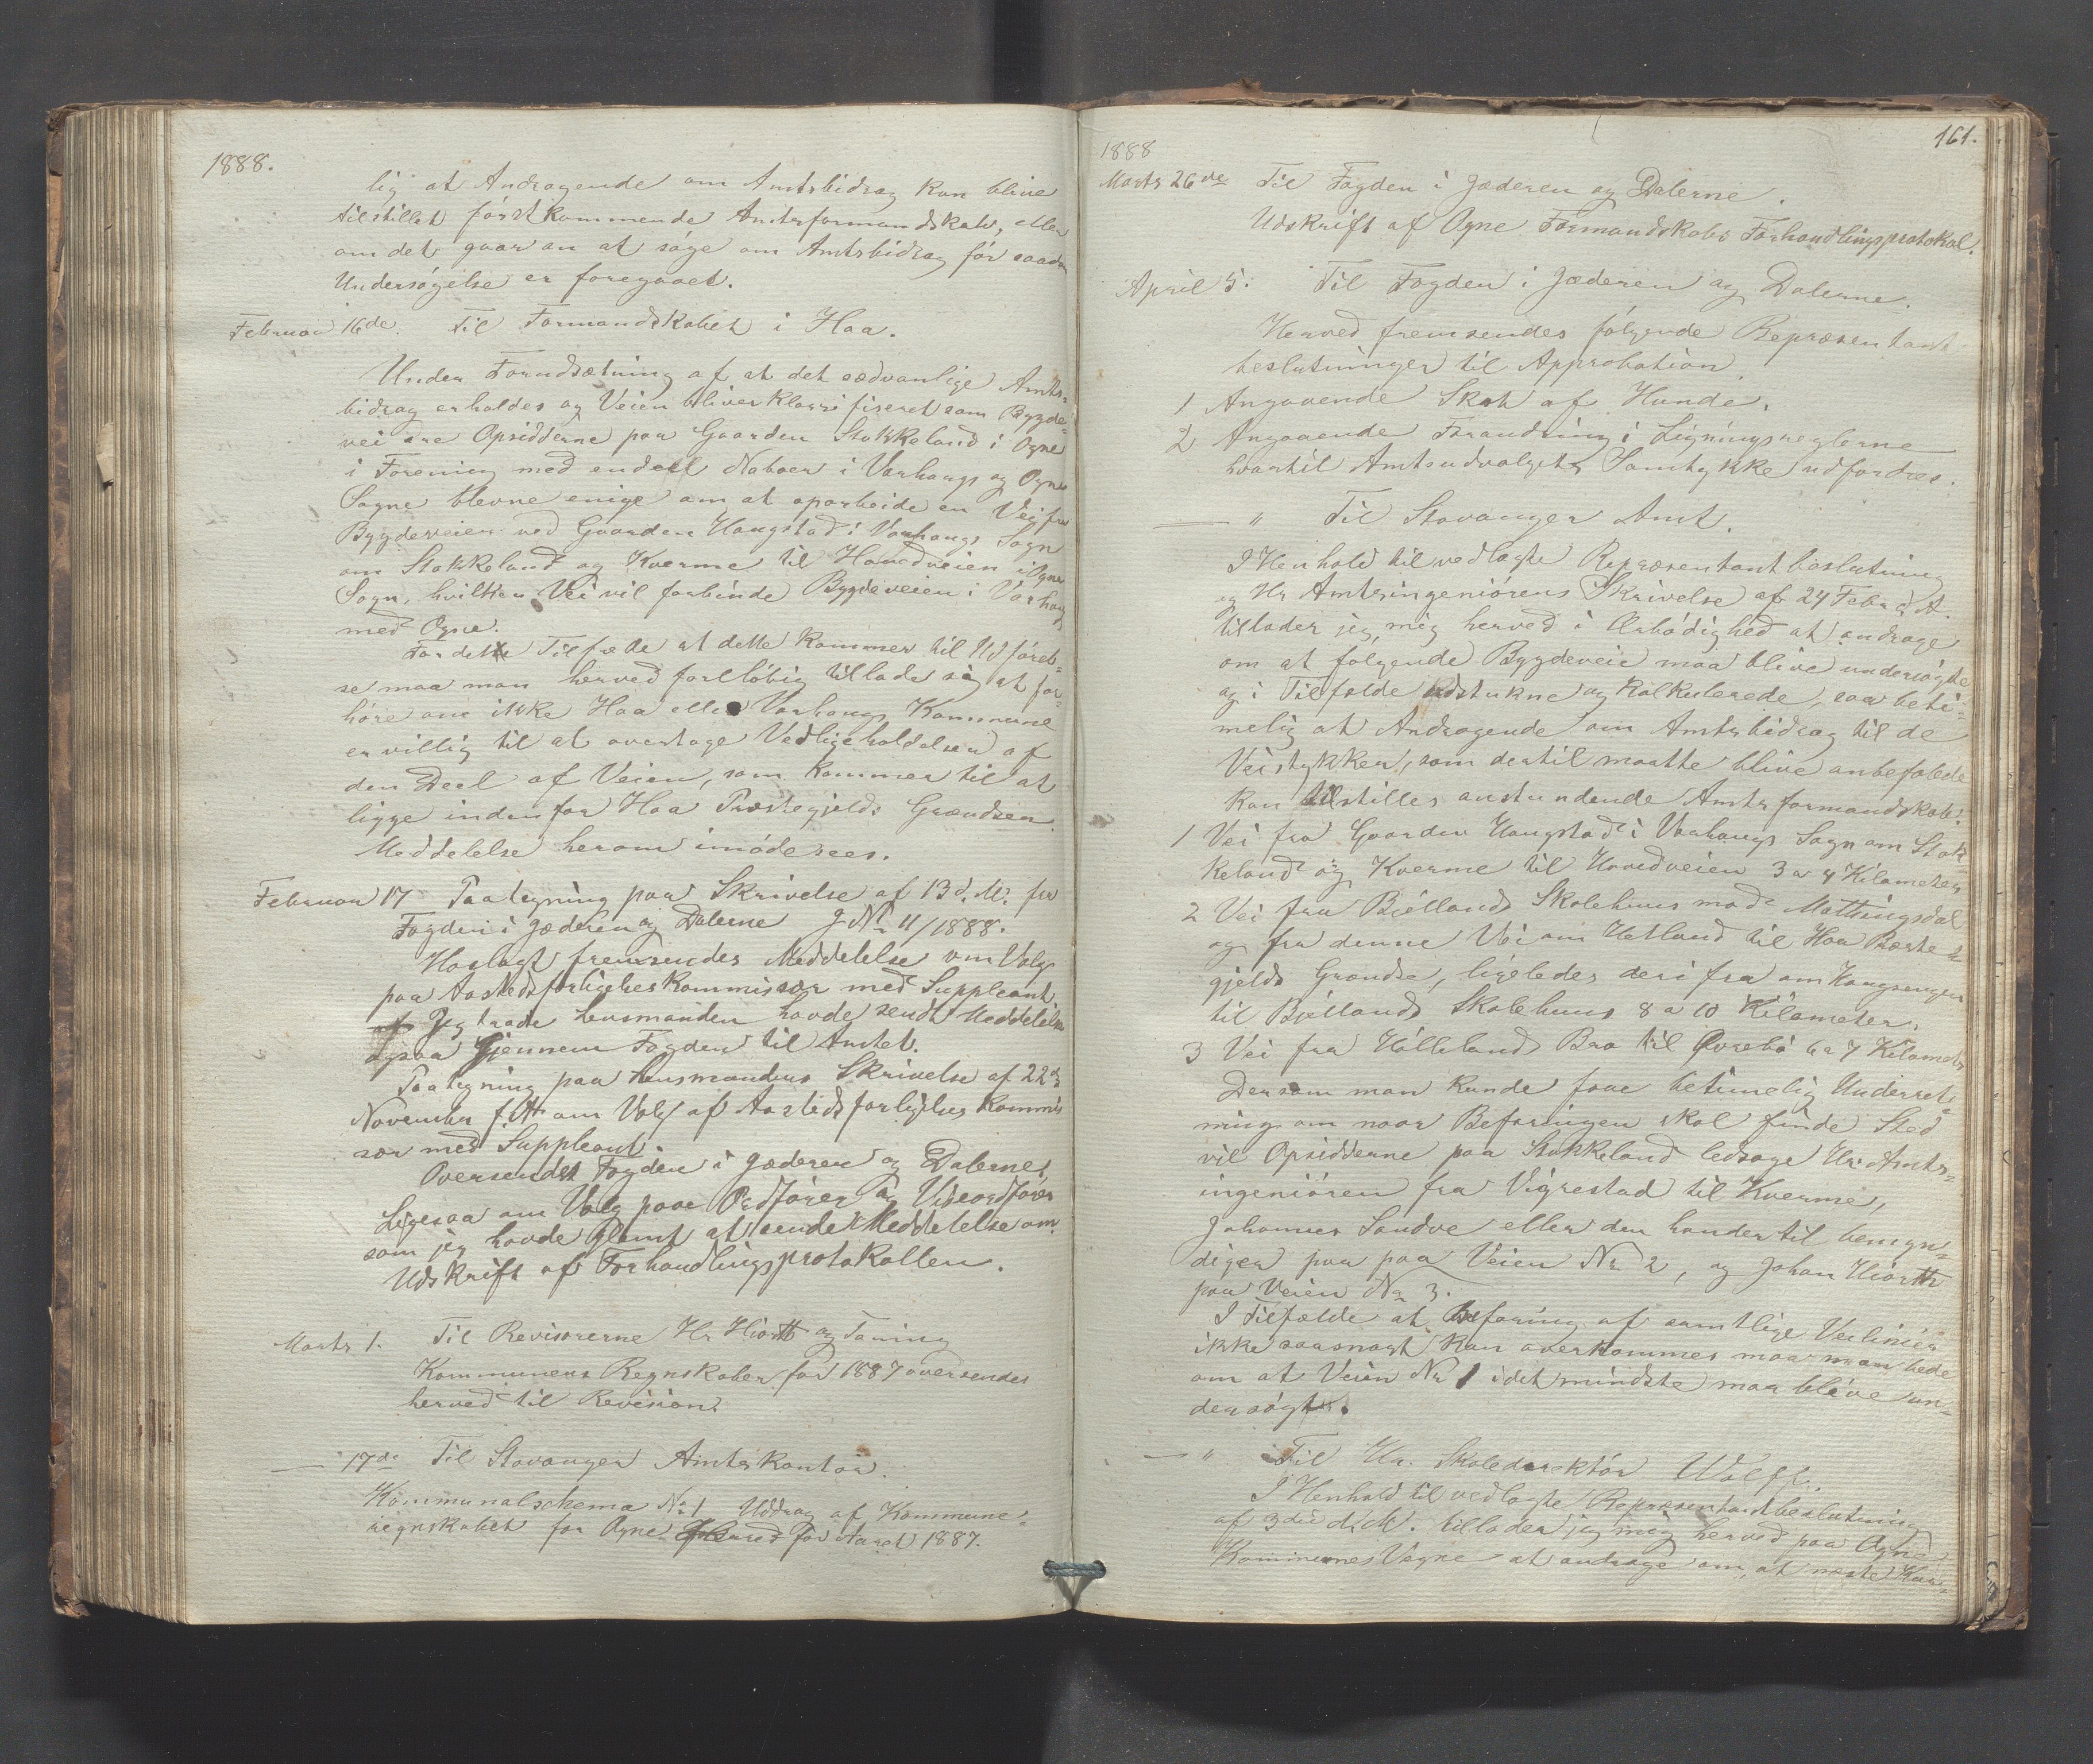 1888.
lig at Andragende om Amtsbidrag kan blive
tilstillet förstkommende Amtsformandskab, eller
om det gaar an at söge om Amtsbidrag för saadan
Undersögelse er foregaaet.
Februar 16de. Til Formandskabet i Haa.
Under Forudsætning af at det sædvanlige Amts-
bidrag erholdes og Veien bliver klassifiseret som Bygde-
vei ere Opsidderne paa Gaarden Stokkeland i Ogne
i Forening med endeel Naboer i Varhaugs og Ogne
Sogne blevne enige om at oparbeide en Vei fra
Bygdeveien ved Gaarden Haugstad i Varhaugs Sogn
om Stokkeland og Kverme til Hovedveien i Ogne
Sogn, hvilken Vei vil forbinde Bygdeveien i Varhaug
med Ogne.
For dette Tilfælde at dette kommer til Udförel-
se maa man herved forlöbig tillade sig at for-
höre om ikke Haa eller Varhaugs Kommune
er villig til at overtage Vedligeholdelsen af
den Deel af Veien, som kommer til at
ligge inden for Haa Præstegjelds Grændser.
Meddelelse herom imödesees.
Februar 17 Paategning paa Skrivelse af 13 d. M. fra
Fogden i Jæderen og Dalerne J. No 11/1888.
Hoslagt fremsendes Meddelelse om Valg
paa Aastedsforligelseskommissær med Suppleant
Jeg trode Lensmanden havde sendt Meddelelse
ogsaa Gjennem Fogden til Amtet.
Paategning paa Lensmandens Skrivelse af 22de
November f. A. om Valg af Aastedsforligelses Kommis
sær med Suppleant.
Oversendes Fogden i Jæderen og Dalerne.
Ligesaa om Valg paa Ordförer og Viseordförer
som jeg havde Glemt at sende Meddelelse om.
Udskrift af Forhandlingsprotokollen.
Marts 1. Til Revisorerne Hr. Hiorth og Taning
Kommunens Regnskaber for 1887 oversendes
herved til Revision.
— 17de Til Stavanger Amtskontor.
Kommunalschema No 1 Uddrag af Kommune-
regnskabet for Ogne Herred for Aaret 1887.
161.
1888
Marts 26de Til Fogden i Jæderen og Dalerne.
Udskrift af Ogne Formandskabs Forhandlingsprotokol.
April 5. Til Fogden i Jæderen og Dalerne.
Herved fremsendes fölgende Repræsentant
beslutninger til Approbation
1 Angaaende Skat af Hunde.
2 Angaaende Forandring i Ligningsreglerne
hvortil Amtsudvalgets Samtykke udfordres.
— " Til Stavanger Amt.
I Henhold til vedlagte Repræsentantbeslutning
og Hr Amtsingeniörens Skrivelse af 24 Febr d. A.
tillader jeg mig herved i Ærbödighed at andrage
om at folgende Bygdeveie maa blive undersögte
og i Tilfælde udstukne og Kalkulerede, saa beti-
melig at Andragende om Amtsbidrag til de
Veistykker, som dertil maatte blive anbefalede
kan tilstilles anstundende Amtsformandskab:
1 Vei fra Gaarden Haugstad i Varhaugs Sogn om Stok
keland og Kverme til Hovedveien 3 a 4 Kilometer
2 Vei fra Bjelland Skolehuus mod Mattingsdal
og fra denne Vei om Hetland til Haa Præste-
gjelds Grændse, ligeledes derifra om Kaugsengen
til Bjellands Skolehuus 8 a 10 Kilometer.
3 Vei fra Hölleland Bro til Övrebö 6 a 7 Kilometer
Dersom man kunde faae betimelig Underret-
ning om naar Befaringen skal finde Sted
vil Opsidderne paa Stokkeland ledsage Hr. Amts-
ingeniören fra Vigrestad til Kverme,
Johannes Sandve eller den han dertil bemyn-
diger paa paa Veien No 2, og Johan Hiorth
paa Veien No 3.
I Tilfælde at Befaring af samtlige Veilinier
ikke saasnart kan overkommes maa man bede
om at Veien No 1 idetmindste maa blive un-
dersögt.
— " Til Hr. Skoledirektör Wolff.
I Henhold til vedlagte Repræsentantbeslutning
af 3die d. M. tillader jeg mig herved paa Ogne
Kommunes Vegne at andrage om, at næste Kur-